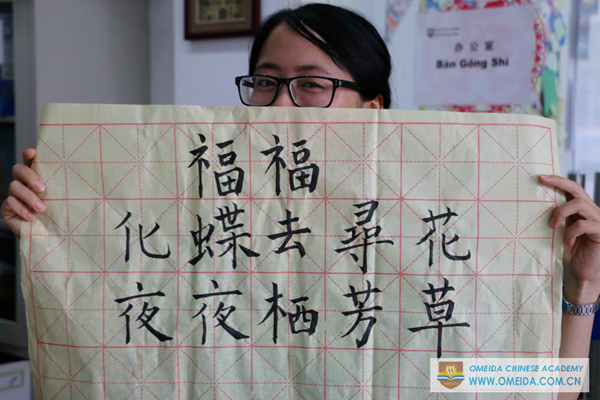 办公室
Bàn Gōng Shì
福福
化蝶去尋花
夜夜栖芳草
OMEIDA CHINESE ACADEMY
WWW.OMEIDA.COM.CN